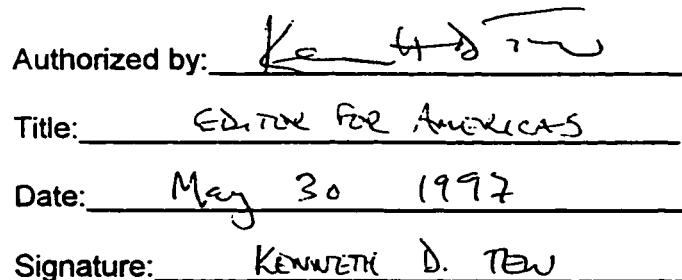 Authorized by: Kenneth D Tew
Title: EDITOR FOR AMERICAS
Date: May 30 1997
Signature: KENNETH D. TEW